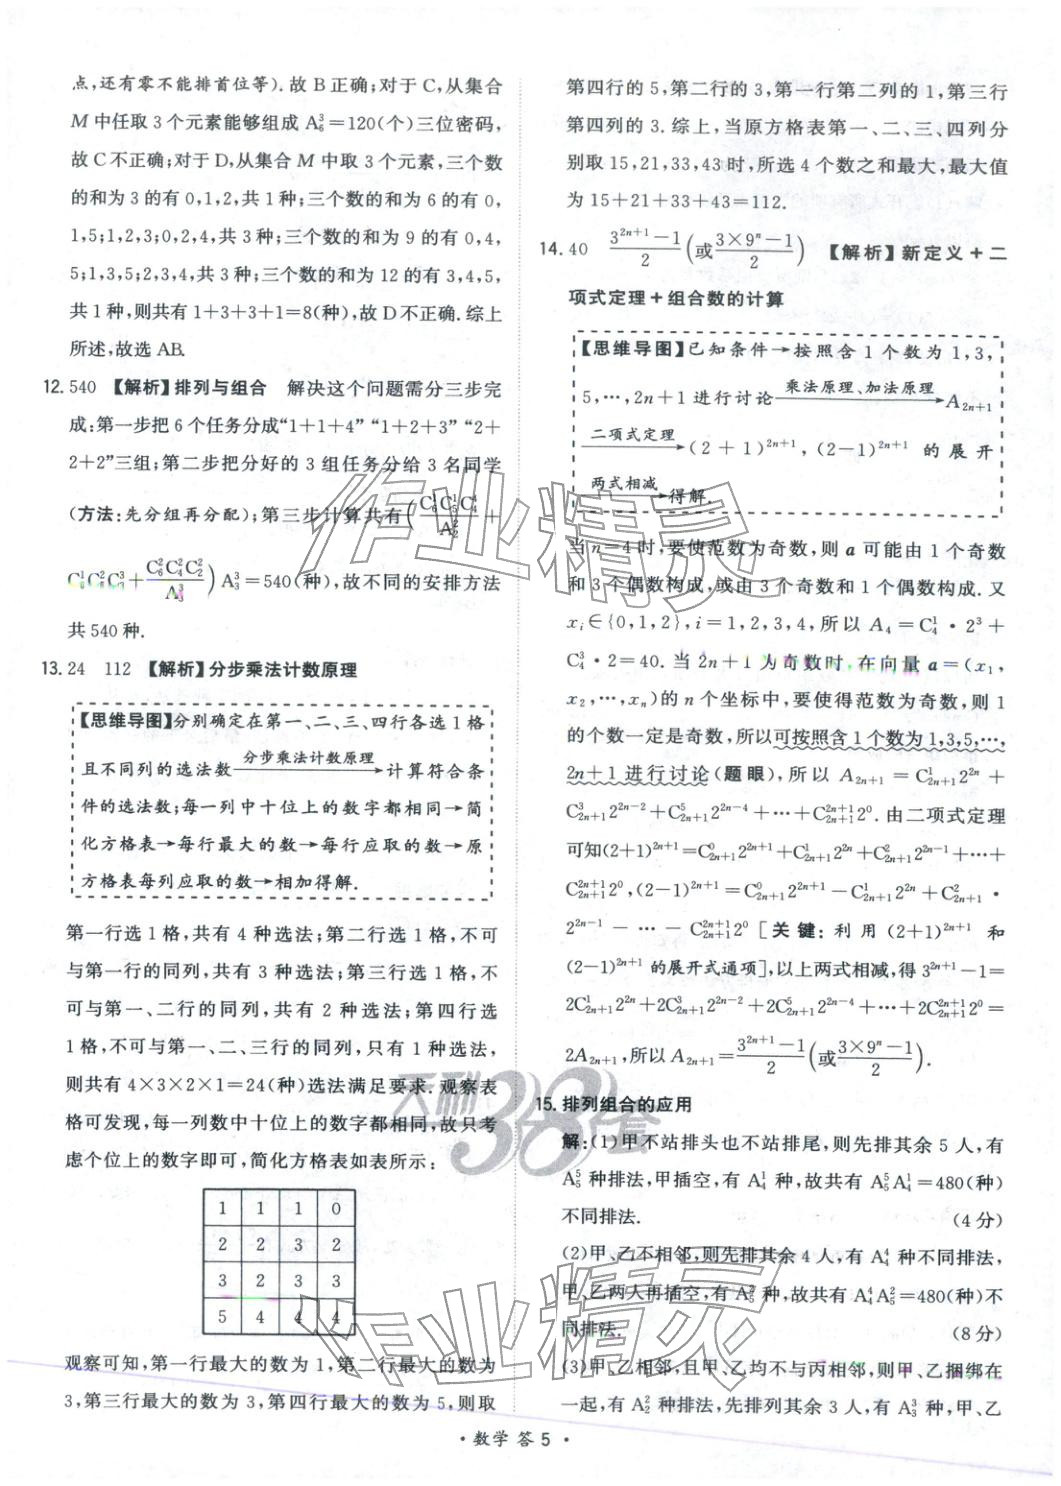 点,还有零不能排首位等).故 B 正确;对于 C,从集合
M 中任取 3 个元素能够组成 A₆³=120(个)三位密码,
故 C 不正确;对于 D,从集合 M 中取 3 个元素,三个数
的和为 3 的有 0,1,2,共 1 种;三个数的和为 6 的有 0,
1,5;1,2,3;0,2,4,共 3 种;三个数的和为 9 的有 0,4,
5;1,3,5;2,3,4,共 3 种;三个数的和为 12 的有 3,4,5,
共 1 种,则共有 1+3+3+1=8(种),故 D 不正确.综上
所述,故选 AB.
12. 540 【解析】排列与组合 解决这个问题需分三步完
成:第一步把 6 个任务分成“1+1+4”“1+2+3”“2+
2+2”三组;第二步把分好的 3 组任务分给 3 名同学
(方法:先分组再分配);第三步计算共有(C₆¹C₅¹C₄⁴/A₂²+
C₆¹C₆²C₃³+C₆²C₄²C₂²/A₃³)A₃³=540(种),故不同的安排方法
共 540 种.
13. 24 112 【解析】分步乘法计数原理
【思维导图】分别确定在第一、二、三、四行各选 1 格
且不同列的选法数 分步乘法计数原理→计算符合条
件的选法数;每一列中十位上的数字都相同→简
化方格表→每行最大的数→每行应取的数→原
方格表每列应取的数→相加得解.
第一行选 1 格,共有 4 种选法;第二行选 1 格,不可
与第一行的同列,共有 3 种选法;第三行选 1 格,不
可与第一、二行的同列,共有 2 种选法;第四行选
1 格,不可与第一、二、三行的同列,只有 1 种选法,
则共有 4×3×2×1=24(种)选法满足要求.观察表
格可发现,每一列数中十位上的数字都相同,故只考
虑个位上的数字即可,简化方格表如表所示:
1 1 1 0
2 2 3 2
3 2 3 3
5 4 4 4
观察可知,第一行最大的数为 1,第二行最大的数为
3,第三行最大的数为 3,第四行最大的数为 5,则取
第四行的 5,第二行的 3,第一行第二列的 1,第三行
第四列的 3.综上,当原方格表第一、二、三、四列分
别取 15,21,33,43 时,所选 4 个数之和最大,最大值
为 15+21+33+43=112.
14. 40 (3²ⁿ⁺¹−1)/2(或(3×9ⁿ−1)/2) 【解析】新定义+二
项式定理+组合数的计算
【思维导图】已知条件→按照含 1 个数为 1,3,
5,…,2n+1 进行讨论 乘法原理、加法原理→A₂ₙ₊₁
二项式定理→(2+1)²ⁿ⁺¹,(2−1)²ⁿ⁺¹ 的展开
两式相减→得解.
当 n=4 时,要使范数为奇数,则 a 可能由 1 个奇数
和 3 个偶数构成,或由 3 个奇数和 1 个偶数构成.又
xᵢ∈{0,1,2},i=1,2,3,4,所以 A₄=C₄¹·2³+
C₄³·2=40.当 2n+1 为奇数时,在向量 a=(x₁,
x₂,…,xₙ)的 n 个坐标中,要使得范数为奇数,则 1
的个数一定是奇数,所以可按照含 1 个数为 1,3,5,…,
2n+1 进行讨论(题眼),所以 A₂ₙ₊₁=C₂ₙ₊₁¹2²ⁿ+
C₂ₙ₊₁³2²ⁿ⁻²+C₂ₙ₊₁⁵2²ⁿ⁻⁴+…+C₂ₙ₊₁²ⁿ⁺¹2⁰.由二项式定理
可知(2+1)²ⁿ⁺¹=C₂ₙ₊₁⁰2²ⁿ⁺¹+C₂ₙ₊₁¹2²ⁿ+C₂ₙ₊₁²2²ⁿ⁻¹+…+
C₂ₙ₊₁²ⁿ⁺¹2⁰,(2−1)²ⁿ⁺¹=C₂ₙ₊₁⁰2²ⁿ⁺¹−C₂ₙ₊₁¹2²ⁿ+C₂ₙ₊₁²·
2²ⁿ⁻¹−…−C₂ₙ₊₁²ⁿ⁺¹2⁰[关键:利用(2+1)²ⁿ⁺¹ 和
(2−1)²ⁿ⁺¹的展开式通项],以上两式相减,得 3²ⁿ⁺¹−1=
2C₂ₙ₊₁¹2²ⁿ+2C₂ₙ₊₁³2²ⁿ⁻²+2C₂ₙ₊₁⁵2²ⁿ⁻⁴+…+2C₂ₙ₊₁²ⁿ⁺¹2⁰=
2A₂ₙ₊₁,所以 A₂ₙ₊₁=(3²ⁿ⁺¹−1)/2(或(3×9ⁿ−1)/2).
15. 排列组合的应用
解:(1)甲不站排头也不站排尾,则先排其余 5 人,有
A₅⁵ 种排法,甲插空,有 A₄¹ 种排法,故共有 A₅⁵A₄¹=480(种)
不同排法. (4 分)
(2)甲、乙不相邻,则先排其余 4 人,有 A₄⁴ 种不同排法,
甲、乙两人再插空,有 A₅² 种,故共有 A₄⁴A₅²=480(种)不
同排法. (8 分)
(3)甲、乙相邻,且甲、乙均不与丙相邻,则甲、乙捆绑在
一起,有 A₂² 种排法,先排列其余 3 人,有 A₃³ 种,甲、乙
·数学 答 5·
作业精灵
天利38套
作业精灵